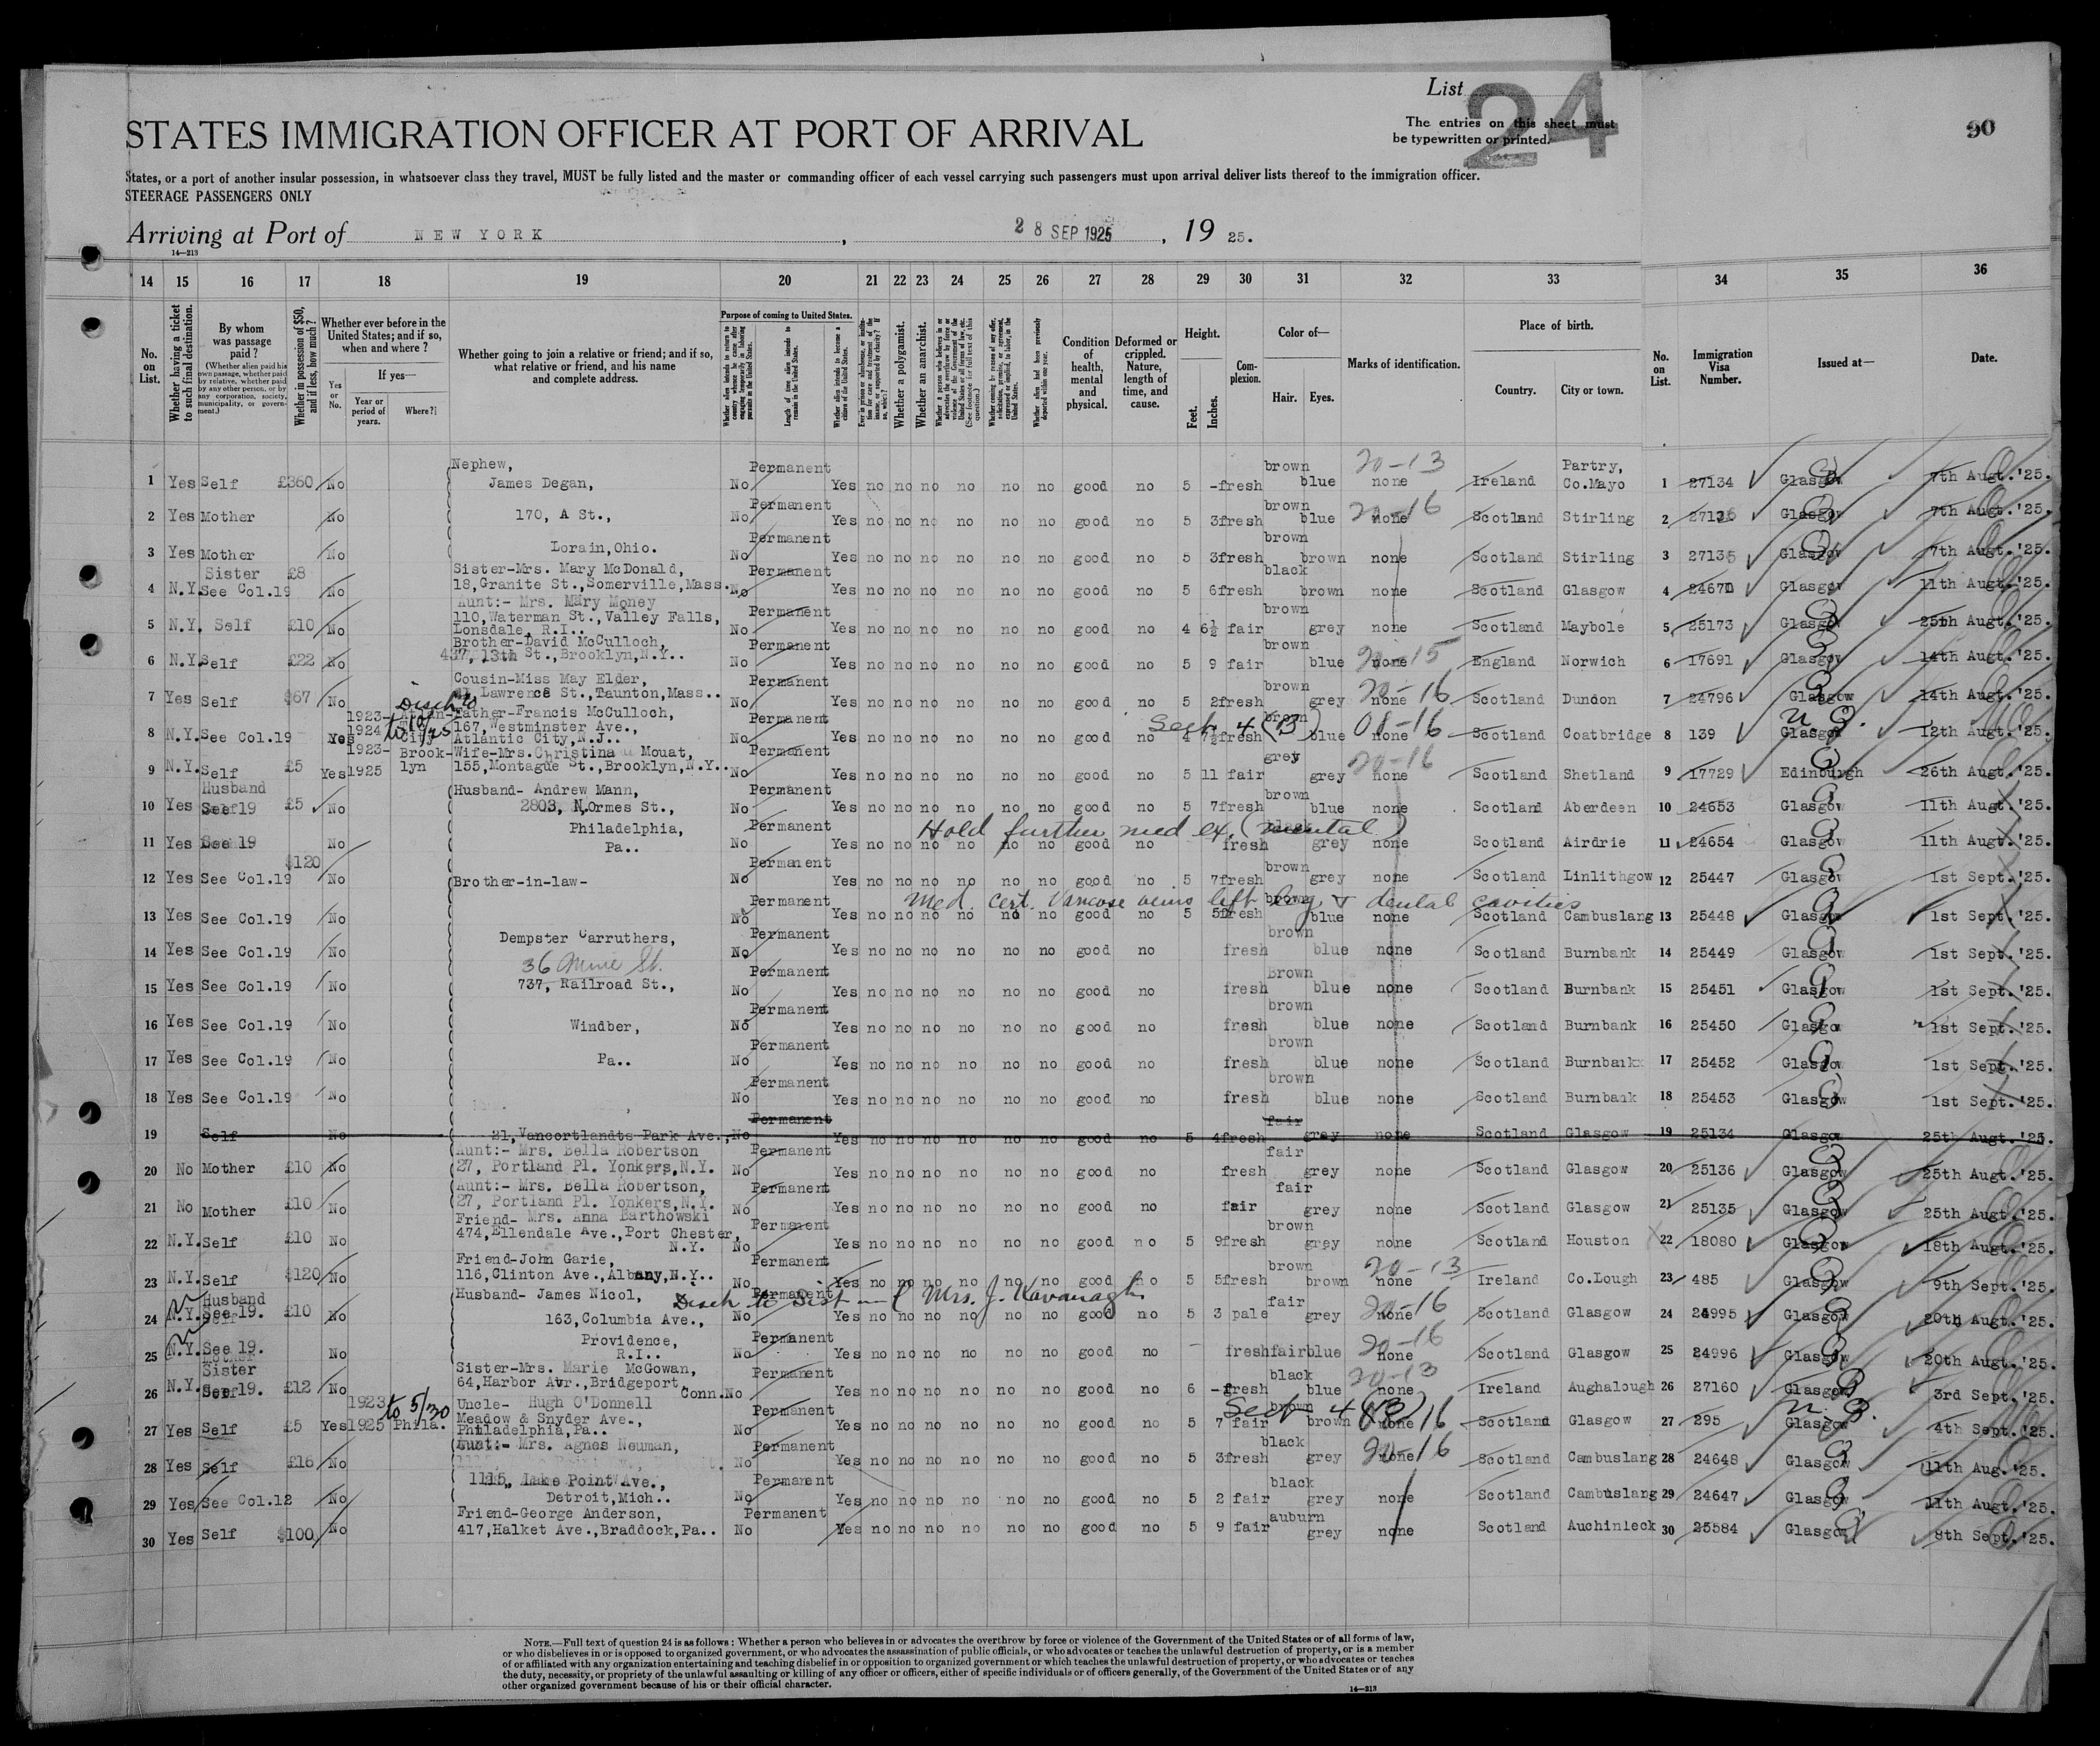 List 24
The entries on this sheet must
be typewritten or printed.
90
STATES IMMIGRATION OFFICER AT PORT OF ARRIVAL
States, or a port of another insular possession, in whatsoever class they travel, MUST be fully listed and the master or commanding officer of each vessel carrying such passengers must upon arrival deliver lists thereof to the immigration officer.
STEERAGE PASSENGERS ONLY
Arriving at Port of NEW YORK, 28 SEP 1925, 19 25.
14—213
14 15 16 17 18 19 20 21 22 23 24 25 26 27 28 29 30 31 32 33 34 35 36
No. on List.
Whether having a ticket to such final destination.
By whom was passage paid?
(Whether alien paid his own passage, whether paid by relative, whether paid by any other person, or by any corporation, society, municipality, or government.)
Whether in possession of $50, and if less, how much?
Whether ever before in the United States; and if so, when and where?
If yes—
Yes or No.
Year or period of years.
Where?
Whether going to join a relative or friend; and if so, what relative or friend, and his name and complete address.
Purpose of coming to United States.
Whether alien intends to return to country whence he came after engaging temporarily in laboring pursuits in the United States.
Length of time alien intends to remain in the United States.
Whether alien intends to become a citizen of the United States.
Whether a polygamist.
Whether an anarchist.
Condition of health, mental and physical.
Deformed or crippled. Nature, length of time, and cause.
Height.
Feet. Inches.
Complexion.
Color of—
Hair. Eyes.
Marks of identification.
Place of birth.
Country. City or town.
No. on List.
Immigration Visa Number.
Issued at—
Date.
1 Yes Self £360 No Nephew, James Degan, No Permanent Yes no no no no no no good no 5 - fresh brown blue none 20-13 Ireland Partry, Co.Mayo 1 27134 Glasgow 7th Augt.'25.
2 Yes Mother No 170, A St., No Permanent Yes no no no no no no good no 5 3 fresh brown blue none 20-16 Scotland Stirling 2 Glasgow 7th Augt.'25.
3 Yes Mother No Lorain,Ohio. No Permanent Yes no no no no no no good no 5 3 fresh brown brown none Scotland Stirling 3 27135 Glasgow 7th Augt.'25.
4 N.Y. Sister See Col.19 £8 No Sister-Mrs. Mary McDonald, 18,Granite St.,Somerville,Mass. No Permanent Yes no no no no no no good no 5 6 fresh black brown none Scotland Glasgow 4 Glasgow 11th Augt.'25.
5 N.Y. Self £10 No Aunt:- Mrs. Mary Money 110,Waterman St.,Valley Falls, Lonsdale, R.I.. No Permanent Yes no no no no no no good no 4 6½ fair brown grey none Scotland Maybole 5 25173 Glasgow 25th Augt.'25.
6 N.Y. Self £22 No Brother-David McCulloch, 437, 13th St.,Brooklyn,N.Y.. No Permanent Yes no no no no no no good no 5 9 fair brown blue none 20-15 England Norwich 6 17691 Glasgow 14th Augt.'25.
7 Yes Self $67 No Cousin-Miss May Elder, Lawrence St.,Taunton,Mass.. No Permanent Yes no no no no no no good no 5 2 fresh brown grey none 20-16 Scotland Dundon 7 24796 Glasgow 14th Augt.'25.
8 N.Y. See Col.19 Yes 1923-1924 City Father-Francis McCulloch, 167,Westminster Ave., Atlantic City,N.J.. No Permanent Yes no no no no no no good no Sect 4 (B) 4 7½ fresh brown blue none 08-16 Scotland Coatbridge 8 139 Glasgow 12th Augt.'25.
9 N.Y. Self £5 Yes 1923-1925 Brooklyn Wife-Mrs.Christina Mouat, 155,Montague St.,Brooklyn,N.Y.. No Permanent Yes no no no no no no good no 5 11 fair grey grey none 20-16 Scotland Shetland 9 17729 Edinburgh 26th Augt.'25.
10 Yes Husband See 19 £5 No Husband- Andrew Mann, 2803, N,Ormes St., No Permanent Yes no no no no no no good no 5 7 fresh brown blue none Scotland Aberdeen 10 24653 Glasgow 11th Augt.'25.
Hold further med ex. (mental)
11 Yes See 19 No Philadelphia, Pa.. No Permanent Yes no no no no no no good no fresh grey none Scotland Airdrie 11 24654 Glasgow 11th Augt.'25.
12 Yes See Col.19 $120 No Brother-in-law- No Permanent Yes no no no no no no good no 5 7 fresh brown grey none Scotland Linlithgow 12 25447 Glasgow 1st Sept.'25.
Med. cert. Varicose veins left leg & dental cavities
13 Yes See Col.19 No No Permanent Yes no no no no no no good no 5 5 fresh brown blue none Scotland Cambuslang 13 25448 Glasgow 1st Sept.'25.
14 Yes See Col.19 No Dempster Carruthers, No Permanent Yes no no no no no no good no fresh brown blue none Scotland Burnbank 14 25449 Glasgow 1st Sept.'25.
36 St.
15 Yes See Col.19 No 737, Railroad St., No Permanent Yes no no no no no no good no fresh Brown blue none Scotland Burnbank 15 25451 Glasgow 1st Sept.'25.
16 Yes See Col.19 No Windber, No Permanent Yes no no no no no no good no fresh brown blue none Scotland Burnbank 16 25450 Glasgow 1st Sept.'25.
17 Yes See Col.19 No Pa.. No Permanent Yes no no no no no no good no fresh brown blue none Scotland Burnbank 17 25452 Glasgow 1st Sept.'25.
18 Yes See Col.19 No No Permanent Yes no no no no no no good no fresh brown blue none Scotland Burnbank 18 25453 Glasgow 1st Sept.'25.
19 Self No 21,Vancortlandts Park Ave., No Permanent Yes no no no no no no good no 5 4 fresh fair grey none Scotland Glasgow 19 25134 Glasgow 25th Augt.'25.
20 No Mother £10 No Aunt:- Mrs. Bella Robertson 27, Portland Pl. Yonkers,N.Y. No Permanent Yes no no no no no no good no fresh fair grey none Scotland Glasgow 20 25136 Glasgow 25th Augt.'25.
21 No Mother £10 No Aunt:- Mrs. Bella Robertson, 27, Portland Pl. Yonkers,N.Y. No Permanent Yes no no no no no no good no fair fair grey none Scotland Glasgow 21 25135 Glasgow 25th Augt.'25.
22 N.Y. Self £10 No Friend- Mrs. Anna Barthowski 474,Ellendale Ave.,Port Chester, N.Y. No Permanent Yes no no no no no no good no 5 9 fresh brown grey none Scotland Houston 22 18080 Glasgow 18th Augt.'25.
23 N.Y. Self $120 No Friend-John Garie, 116,Clinton Ave.,Albany,N.Y.. No Permanent Yes no no no no no no good no 5 5 fresh brown brown none 20-13 Ireland Co.Lough 23 485 Glasgow 9th Sept.'25.
Disch to Sist Mrs. J. Kavanagh
24 N.Y. Husband See 19. £10 No Husband- James Nicol, 163,Columbia Ave., No Permanent Yes no no no no no no good no 5 3 pale fair grey none 20-16 Scotland Glasgow 24 24995 Glasgow 20th Augt.'25.
25 N.Y. See 19. No Providence, R.I.. No Permanent Yes no no no no no no good no - fresh fair blue none 20-16 Scotland Glasgow 25 24996 Glasgow 20th Augt.'25.
26 N.Y. Sister See 19. £12 No Sister-Mrs. Marie McGowan, 64,Harbor Avr.,Bridgeport, Conn. No Permanent Yes no no no no no no good no 6 fresh black blue none 20-13 Ireland Aughalough 26 27160 Glasgow 3rd Sept.'25.
27 Yes Self £5 Yes 1923 1925 to 5/30 Phila. Uncle- Hugh O'Donnell Meadow & Snyder Ave., Philadelphia,Pa.. No Permanent Yes no no no no no no good no Sect 4 (B) 5 7 fair brown brown none 16 Scotland Glasgow 27 295 Glasgow 4th Sept.'25.
28 Yes Self £16 No Aunt:- Mrs. Agnes Neuman, No Permanent Yes no no no no no no good no 5 3 fresh black grey none 20-16 Scotland Cambuslang 28 24648 Glasgow 11th Aug.'25.
29 Yes See Col.12 No 1115, Lake Point Ave., Detroit,Mich.. No Permanent Yes no no no no no no good no 5 2 fair black grey none Scotland Cambuslang 29 24647 Glasgow 11th Augt.'25.
30 Yes Self $100 No Friend-George Anderson, 417,Halket Ave.,Braddock,Pa.. No Permanent Yes no no no no no no good no 5 9 fair auburn grey none Scotland Auchinleck 30 25584 Glasgow 8th Sept.'25.
NOTE.—Full text of question 24 is as follows: Whether a person who believes in or advocates the overthrow by force or violence of the Government of the United States or of all forms of law,
or who disbelieves in or is opposed to organized government, or who advocates the assassination of public officials, or who advocates or teaches the unlawful destruction of property, or is a member
of or affiliated with any organization entertaining and teaching disbelief in or opposition to organized government or which teaches the unlawful destruction of property, or who advocates or teaches
the duty, necessity, or propriety of the unlawful assaulting or killing of any officer or officers, either of specific individuals or of officers generally, of the Government of the United States or of any
other organized government because of his or their official character.
14—213